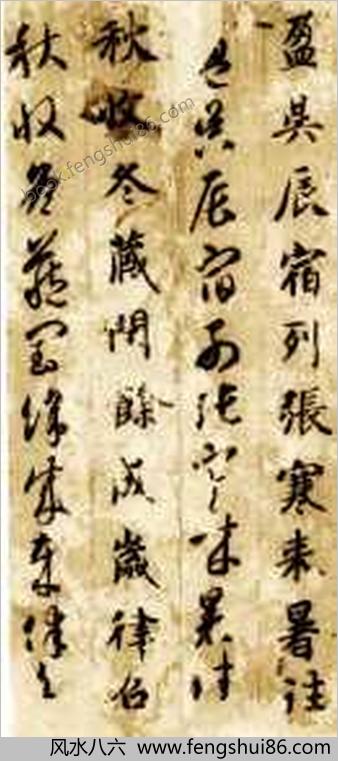 盈昃辰宿列張寒来暑往
盈昃辰宿列张寒来暑往
秋收冬藏閏餘成歲律吕
秋收冬藏閏餘成歲律吕
book.fengshui86.com
风水八六 www.fengshui86.com